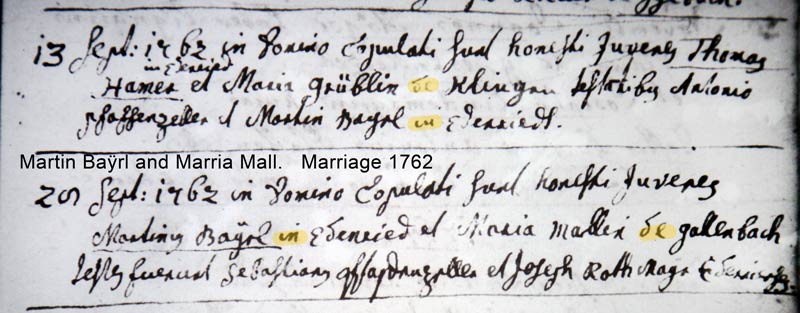 13 Sept: 1762 in Domino Copulati sunt honesti Juvenes Thomas
in Edenried
Hamer et Maria Grüblin de Klingen testibus Antonio
Pfaffenzeller et Martin Bayrl in Edenriedt.
Martin Baÿrl and Marria Mall. Marriage 1762
Sept: 1762 in Domino Copulati sunt honesti Juvenes
Martinus Baÿrl in Edenried et Maria Mallin de gallenbach
testes fuerunt Sebastianus et Joseph Roth